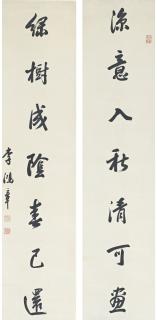 涼意入秋清可畫
綠樹成陰春已還
李鴻章